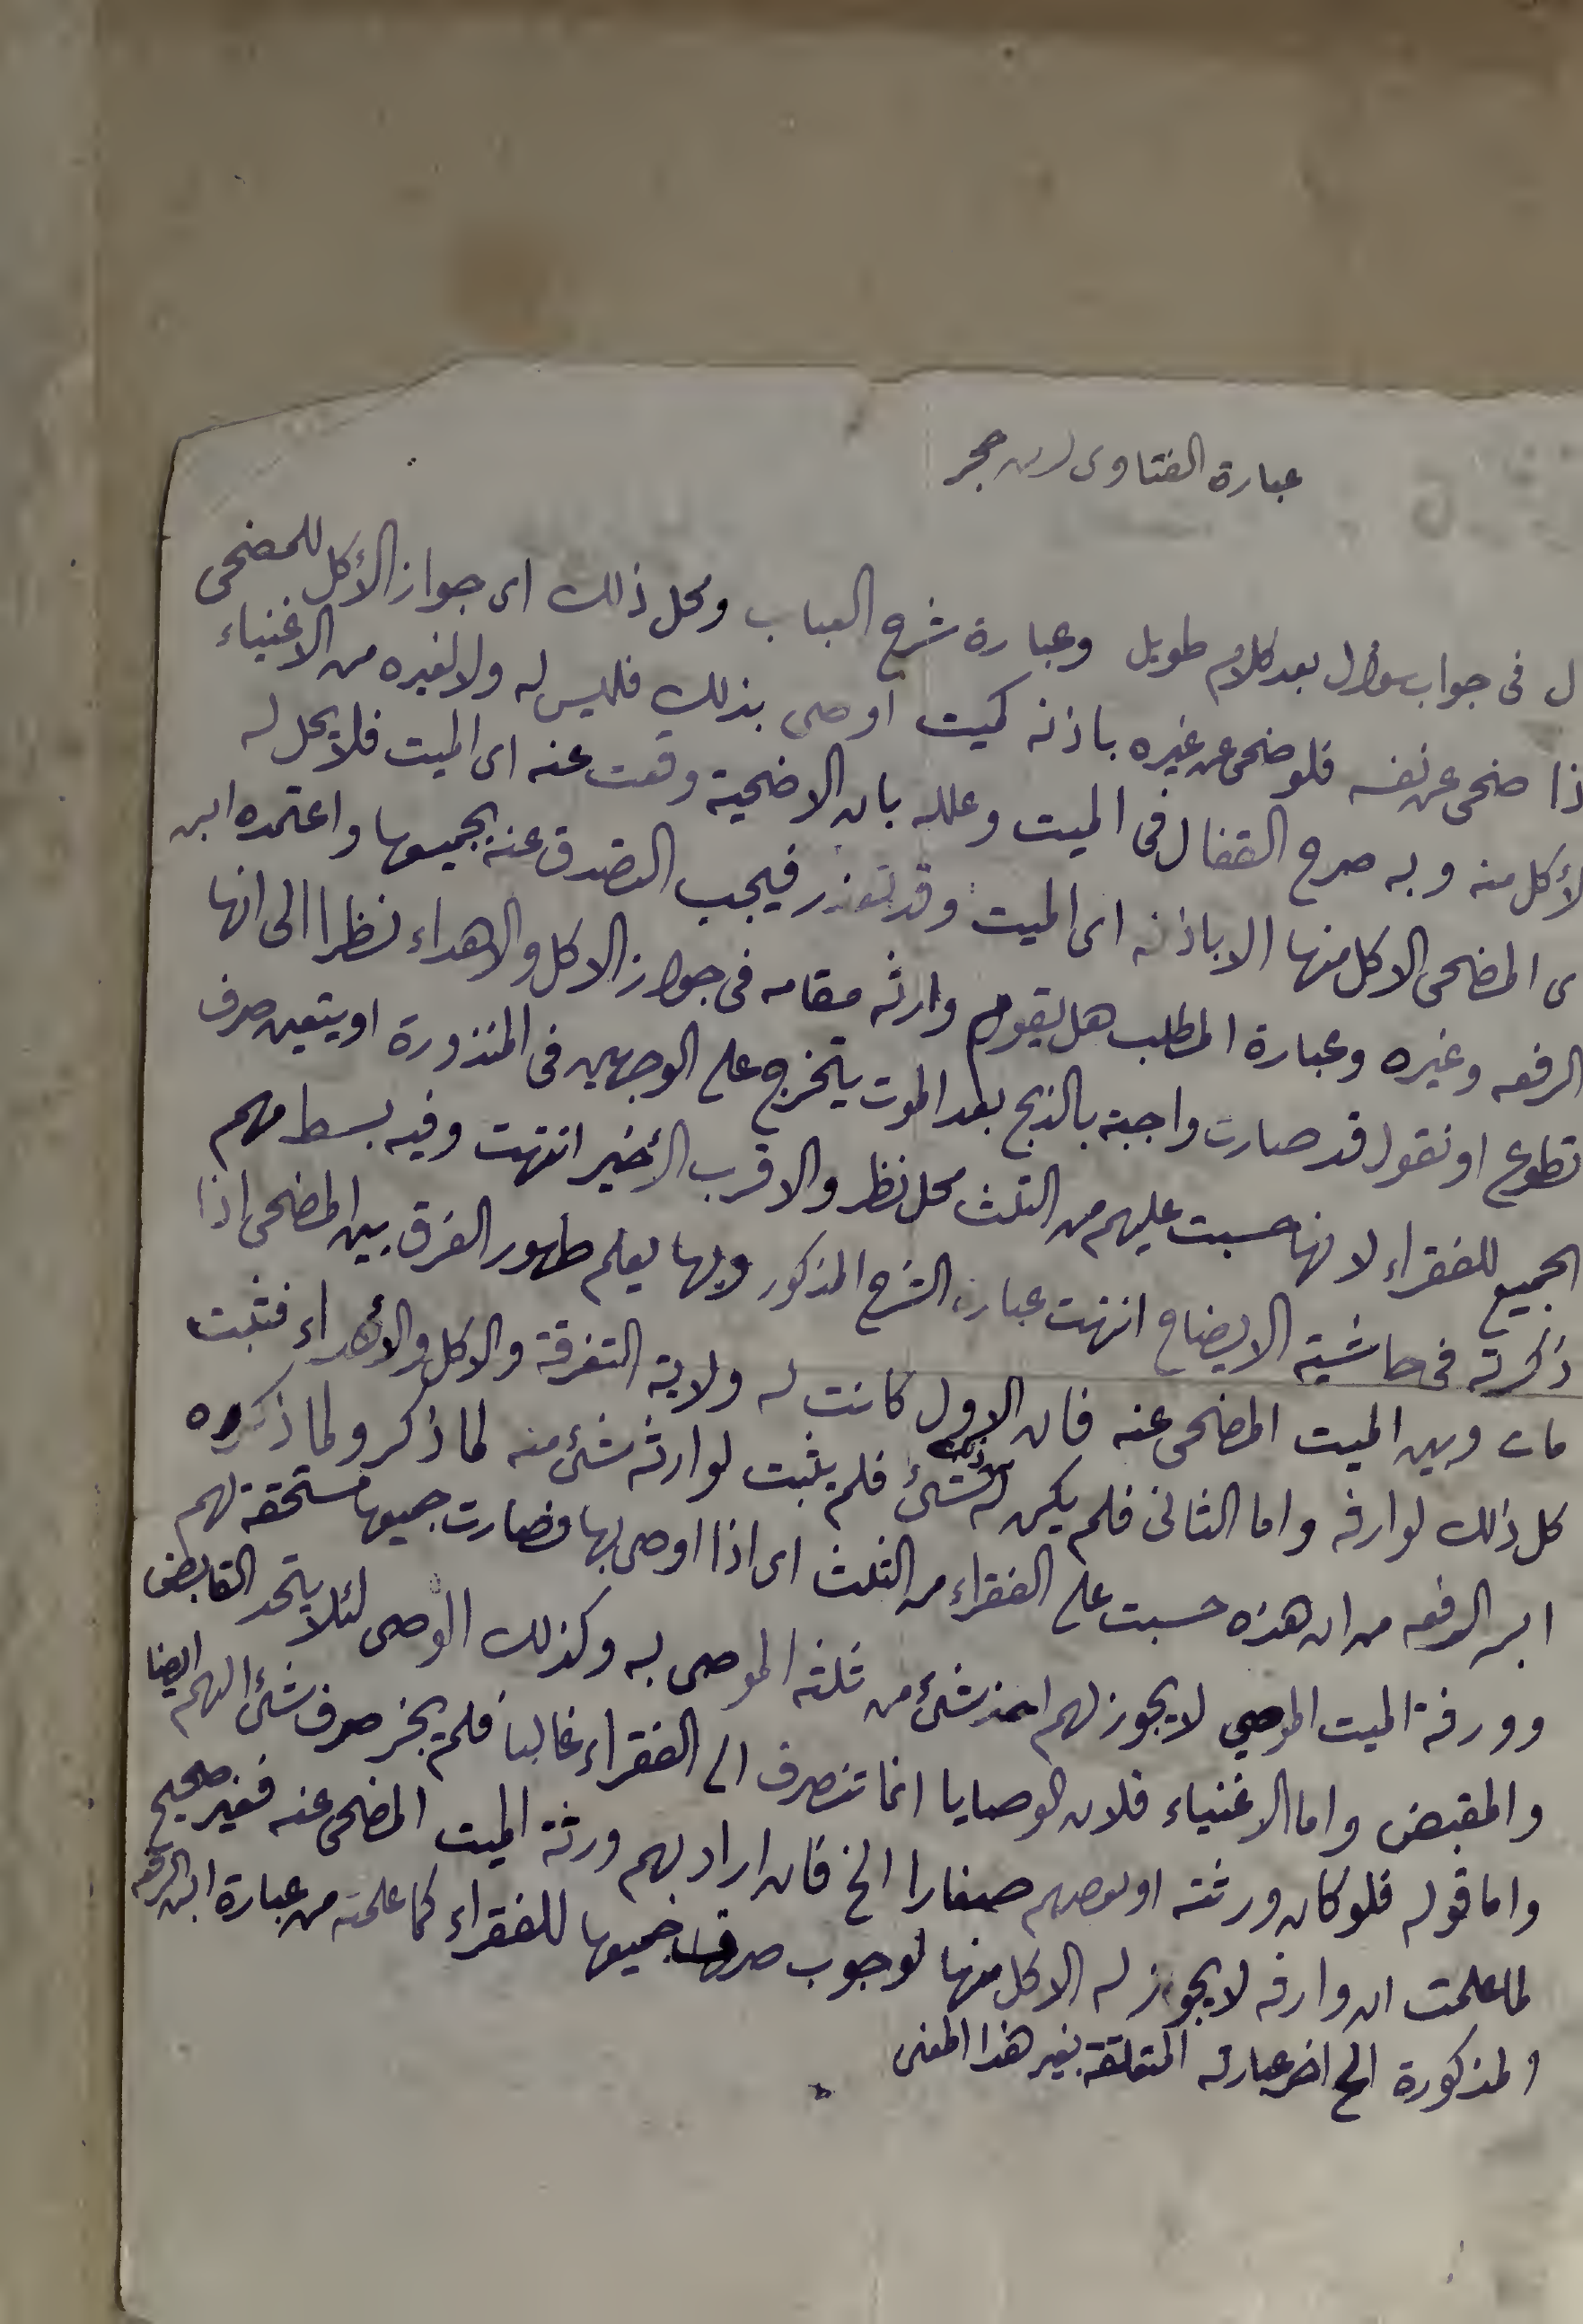 عبارة الفتاوى لابن حجر
ل فى جواب سؤال بعد كلام طويل وعبارة شرح العباب ومحل ذلك اى جواز الأكل للمضحى
ذا ضحى عن نفسه فلو ضحى عن غيره باذنه كميت اوصى بذلك فليس له ولا لغيره من الاغنياء
لأكل منه وبه صرح القفال فى الميت وعلله بان الاضحية وقعت عنه اى الميت فلا يحل له
ى المضحى الاكل منها الا باذنه اى الميت وقد تعذر فيجب التصدق عنه بجميعها واعتمده ابن
الرفعه وغيره وعبارة المطلب هل يقوم وارثه مقامه فى جواز الاكل والاهداء نظرا الى انها
تطوع او نقول قد صارت واجبة بالذبح بعد الموت يتخرج على الوجهين فى المنذورة او يتعين صرف
الجميع للفقراء لانها حسبت عليهم من الثلث محل نظر والاقرب الأخير انتهت وفيه بسط مهم
ذكرته فى حاشية الايضاح انتهت عبارة الشرح المذكور وبها يعلم ظهور الفرق بين المضحى اذا
مات وبين الميت المضحى عنه فان الاول كانت له ولاية التفرقة والاكل والأهداء فثبت
كل ذلك لوارثه واما الثانى فلم يكن له شئ فلم يثبت لوارثه شئ منه لما ذكر ولما ذكره
ابن الرفعه من ان هذه حسبت على الفقراء من الثلث اى اذا اوصى بها فصارت جميعها مستحقة لهم
وورثة الميت الموصي لا يجوز لهم اخذ شئ من ثلثه الموصى به وكذلك الوصى لئلا يتحد القابض
والمقبض واما الاغنياء فلان الوصايا انما تنصرف الى الفقراء غالبا فلم يجز صرف شئ اليهم ايضا
واما قوله فلو كان ورثته او بعضهم صغارا الخ فان اراد بهم ورثة الميت المضحى عنه فغير صحيح
لما علمت ان وارثه لا يجوز له الاكل منها لوجوب صرف جميعها للفقراء كما علمته من عبارة ابن الرفعه
المذكورة الخ اخر عبارته المتعلقة بغير هذا المعنى